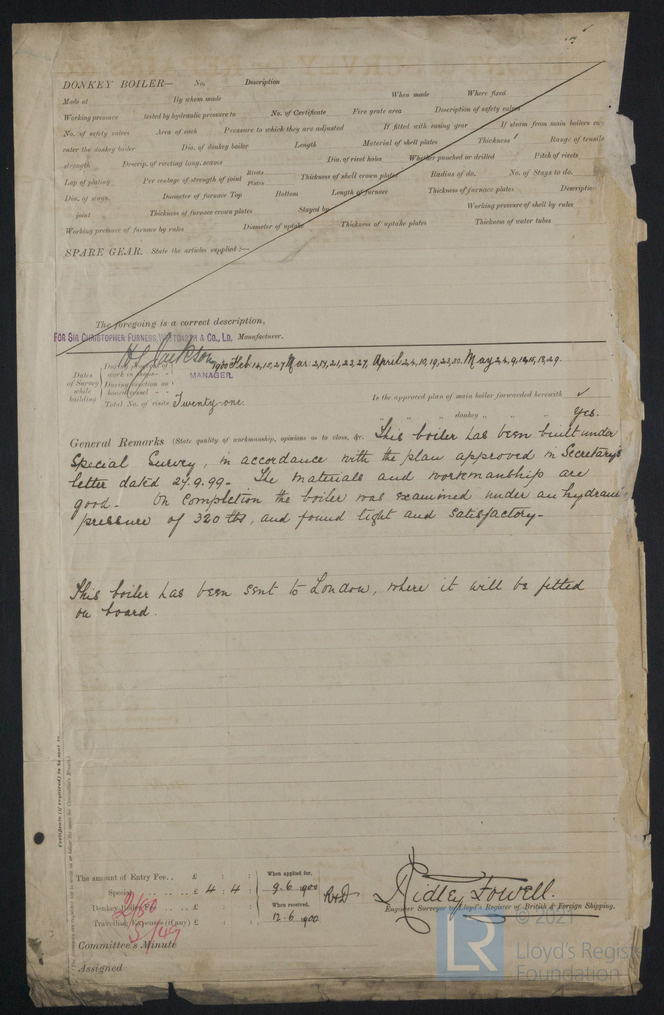 DONKEY BOILER— No. Description
Made at By whom made When made Where fixed
Working pressure tested by hydraulic pressure to No. of Certificate Fire grate area Description of safety valves
No. of safety valves Area of each Pressure to which they are adjusted If fitted with easing gear If steam from main boilers can
enter the donkey boiler Dia. of donkey boiler Length Material of shell plates Thickness Range of tensile
strength Descrip. of riveting long. seams Dia. of rivet holes Whether punched or drilled Pitch of rivets
Lap of plating Per centage of strength of joint Rivets Plates Thickness of shell crown plates Radius of do. No. of Stays to do.
Dia. of stays. Diameter of furnace Top Bottom Length of furnace Thickness of furnace plates Description
joint Thickness of furnace crown plates Stayed by Working pressure of shell by rules
Working pressure of furnace by rules Diameter of uptake Thickness of uptake plates Thickness of water tubes
SPARE GEAR. State the articles supplied :—
The foregoing is a correct description,
FOR SIR CHRISTOPHER FURNESS, WESTGARTH & CO., LD. Manufacturer.
MANAGER.
Dates of Survey while building
During progress of work in shops - -
During erection on board vessel - - -
Total No. of visits Twenty-one.
1900 Feb. Mar. April May
Is the approved plan of main boiler forwarded herewith ✓
" " " donkey " " " Yes.
General Remarks (State quality of workmanship, opinions as to class, &c. This boiler has been built under
Special Survey, in accordance with the plan approved in Secretary's
letter dated 27.9.99- The materials and workmanship are
good- On completion the boiler was examined under an hydraulic
pressure of 320 lbs, and found tight and satisfactory-
This boiler has been sent to London, where it will be fitted
on board.
Certificate (if required) to be sent to
The amount of Entry Fee.. £ : : When applied for,
Special .. .. .. £ 4 : 4 : 9.6.1900
Donkey Boiler Fee .. .. £ : : When received,
Travelling Expenses (if any) £ : : 12.6.1900
Ridley Fowell.
Engineer Surveyor to Lloyd's Register of British & Foreign Shipping.
Committee's Minute
Assigned
LR
© 2021
Lloyd's Register
Foundation